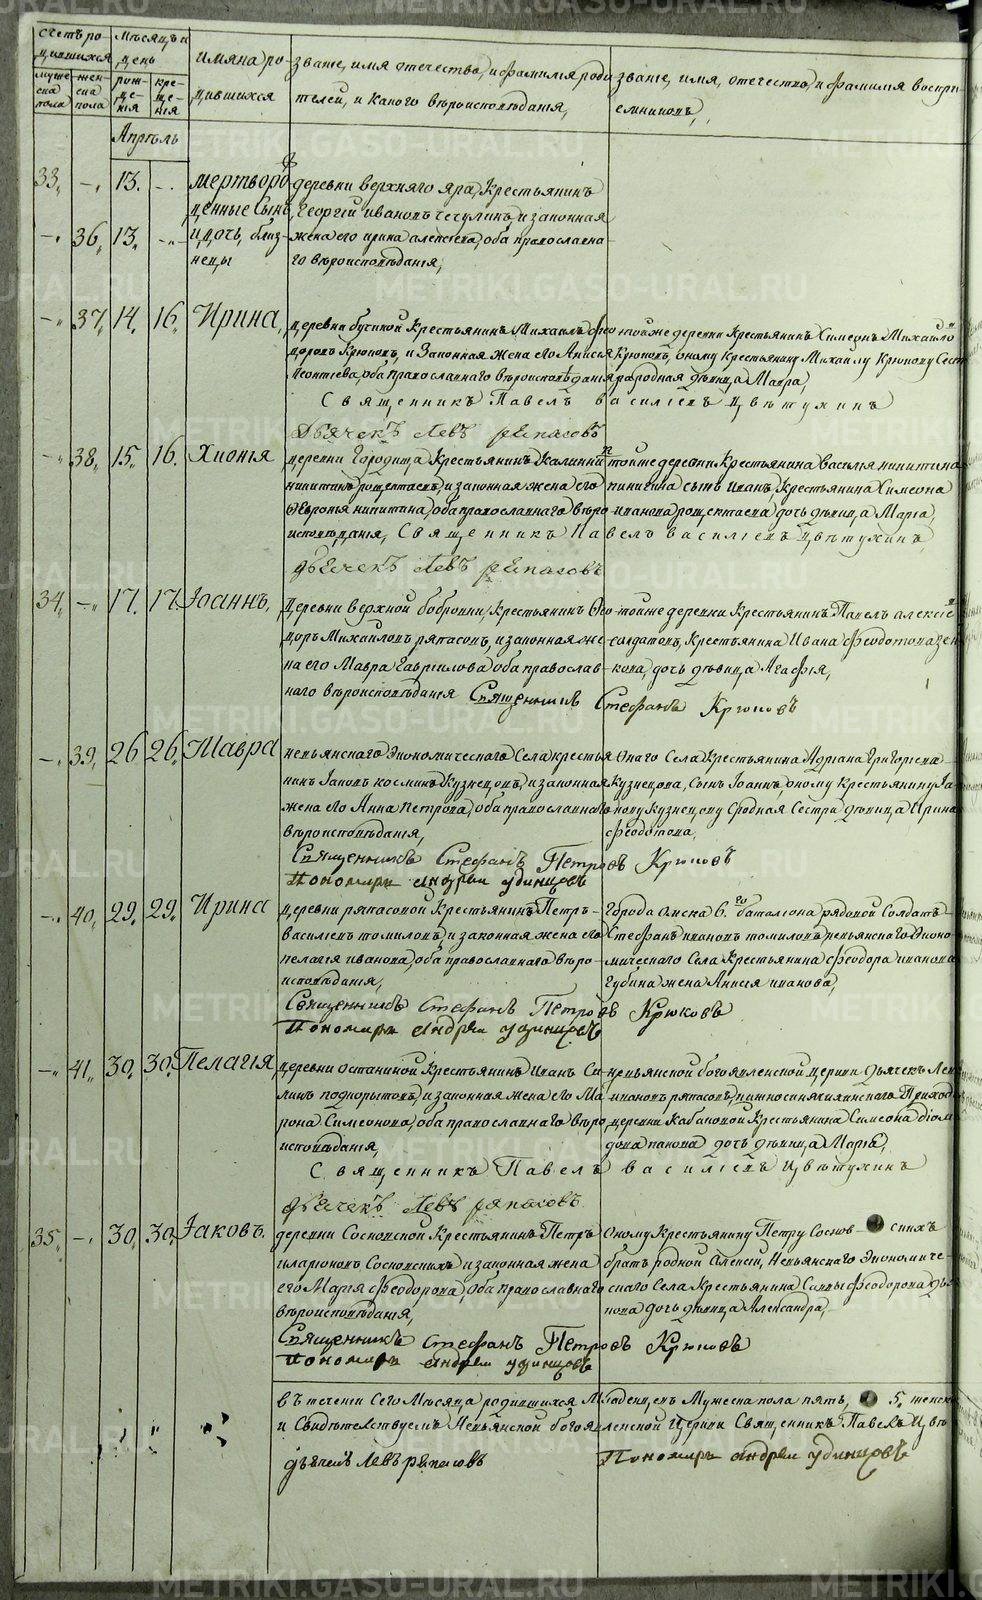 Счетъ родившихся
Мѣсяцъ и день
Имяна родившихся
Званіе, имя отечество, и фамилія родителей, и какого вѣроисповѣданія,
Званіе, имя, отечество, и фамилія воспріемниковъ,
мужеска пола
женска пола
рожденія
крещенія
Апрѣль
33, -, 13. -.
мертворожденные Сынъ
и дочь, близнецы
-. 36, 13, -.
деревни верхняго яра, Крестьянинъ
Георгій ивановъ чечулинъ, и законная
жена его ирина алексіева, оба православнаго
вѣроисповѣданія,
-, 37, 14, 16, Ирина,
деревни бучиной Крестьянинъ Михаилъ Фео
доровъ Крюковъ, и Законная жена его Анисія
Леонтіева, оба Православнаго вѣроисповѣданія
тойже деревни Крестьянинъ Симеонъ Михайло
Крюковъ, оному Крестьянину Михаилу Крюкову Сест
ра родная дѣвица Мавра,
Священникъ Павелъ василіевъ Цвѣтухинъ
Дьячекъ Левъ рѣпасовъ
-, 38, 15, 16. Хіонія
деревни Городища Крестьянинъ Калинникъ
никитинъ рощектаевъ, и законная жена его
Февронія никитина, оба православнаго вѣро
исповѣданія,
тойже деревни Крестьянина василья никитина
сынъ Иванъ, Крестьянина Симеона
иванова рощектаева дочь дѣвица Марія,
Священникъ Павелъ василіевъ Цвѣтухинъ
дьячекъ Левъ рѣпасовъ
34, -, 17, 17. Іоаннъ,
Деревни верхной бобровки, Крестьянинъ Фео
доръ Михаиловъ ряпасовъ, и законная же
на его Мавра Гавриилова оба православ
наго вѣроисповѣданія
тойже деревни Крестьянинъ Павелъ алексіе
солдатовъ, Крестьянина Ивана Феодотова
кова, дочь дѣвица Агафія,
Священникъ Стефанъ Крюковъ
-. 39, 26 26, Мавра
невьянскаго Экономическаго Села крестья
нинъ Іаковъ косминъ Кузнецовъ, и законная
жена его Анна Петрова, оба православнаго
вѣроисповѣданія,
Онаго Села Крестьянина Адріана Григоріева
Кузнецова, Сынъ Іоаннъ, оному Крестьянину Іа
кову Кузнецову Сродная Сестра дѣвица Ирина
Феодотова,
Священникъ Стефанъ Петровъ Крюковъ
Пономарь андреи удинцовъ
-. 40, 29. 29. Ирина
деревни ряпасовой Крестьянинъ Петръ
василіевъ томиловъ, и законная жена его
пелагія иванова, оба православнаго вѣро
исповѣданія,
Города омска 6.го баталіона рядовой Солдатъ
Стефанъ ивановъ томиловъ, невьянскаго Эконо
мическаго Села Крестьянина Феодора иванова
Губина жена Анисія иванова,
Священникъ Стефанъ Петровъ Крюковъ
Пономарь андреи удинцовъ
-, 41, 30, 30, Пелагія
деревни останиной Крестьянинъ Иванъ Си
линъ подкорытовъ, и законная жена его Ма
трона Симеонова, оба православнаго вѣро
исповѣданія,
невьянской богоявленской церкви дьячекъ Левъ
ивановъ ряпасовъ, нижносинячихинскаго Приход
деревни Кабаковой Крестьянина Симеона діоми
дова панова дочь дѣвица Марія,
Священникъ Павелъ василіевъ Цвѣтухинъ
дьячекъ Левъ ряпасовъ
35, -. 30, 30, Іаковъ.
деревни Сосновской Крестьянинъ Петръ
иларіоновъ Сосновскихъ, и законная жена
его Марія Феодорова, оба Православнаго
вѣроисповѣданія,
Оному Крестьянину Петру Соснов скихъ
братъ родной алексій, Невьянскаго Экономиче
скаго Села Крестьянина Саввы Феодорова
дочь дѣвица Александра,
Священникъ Стефанъ Петровъ Крюковъ
Пономарь андреи удинцовъ
въ теченіи Сего Мѣсяца родившихся Младенцевъ Мужеска пола пять, 5, женск
и Свидѣтелствуемъ Невьянской богоявленской Церкви Священникъ Павелъ Цвѣ
дьячекъ Левъ ряпасовъ
Пономарь андреи удинцовъ
METRIKI.GASO-URAL.RU